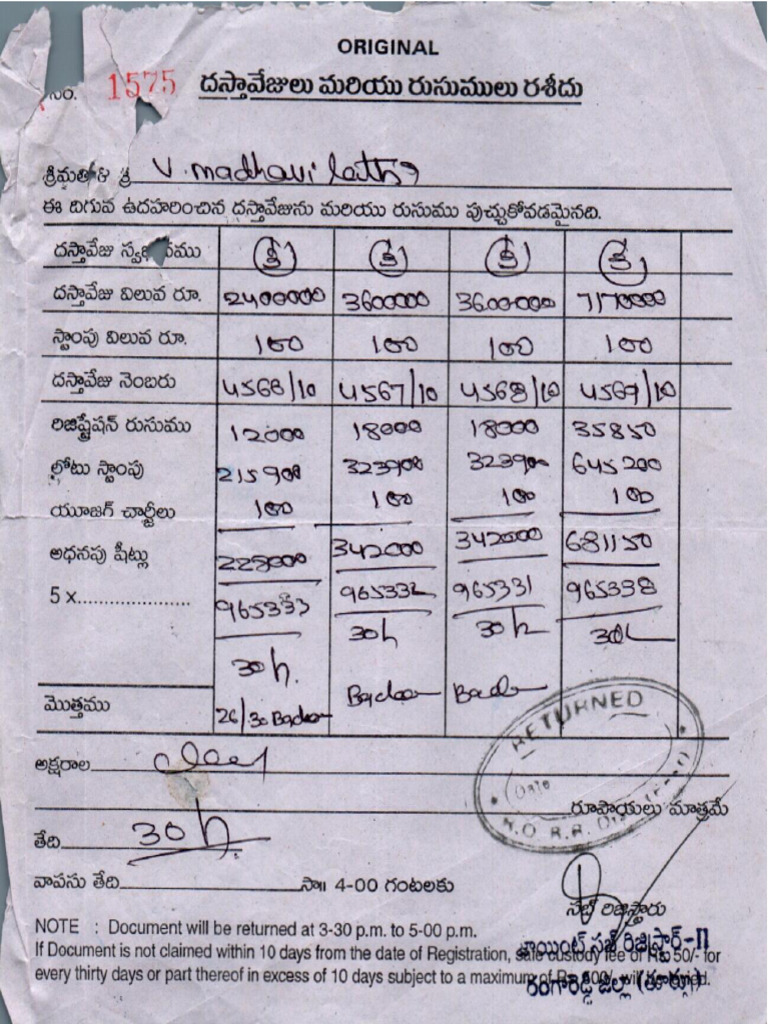 ORIGINAL
నెం. 1575 దస్తావేజులు మరియు రుసుములు రశీదు
శ్రీమతి & శ్రీ V. madhavi latha
ఈ దిగువ ఉదహరించిన దస్తావేజును మరియు రుసుము పుచ్చుకోవడమైనది.
దస్తావేజు
దస్తావేజు విలువ రూ. 2400000 3600000 3600000 7170000
స్టాంపు విలువ రూ. 100 100 100 100
దస్తావేజు నెంబరు 4568/10 4567/10 4568/10 4569/10
రిజిష్ట్రేషన్ రుసుము 12000 18000 18000 35850
లోటు స్టాంపు 215900 323900 323900 645200
యూజర్ చార్జీలు 100 100 100 100
అధనపు షీట్లు 228000 342000 342000 681150
5 x.................... 965333 965332 965331 965338
30h 30h 30h 30h
మొత్తము 26/30
అక్షరాల
రూపాయలు మాత్రమే
RETURNED
Date
తేది 30h
వాపసు తేది సా॥ 4-00 గంటలకు
సబ్ రిజిస్ట్రారు
జాయింట్ సబ్ రిజిస్ట్రార్-II
రంగారెడ్డి జిల్లా (తూర్పు)
NOTE : Document will be returned at 3-30 p.m. to 5-00 p.m.
If Document is not claimed within 10 days from the date of Registration, safe custody fee of Rs. 50/- for
every thirty days or part thereof in excess of 10 days subject to a maximum of Rs. 500/- will